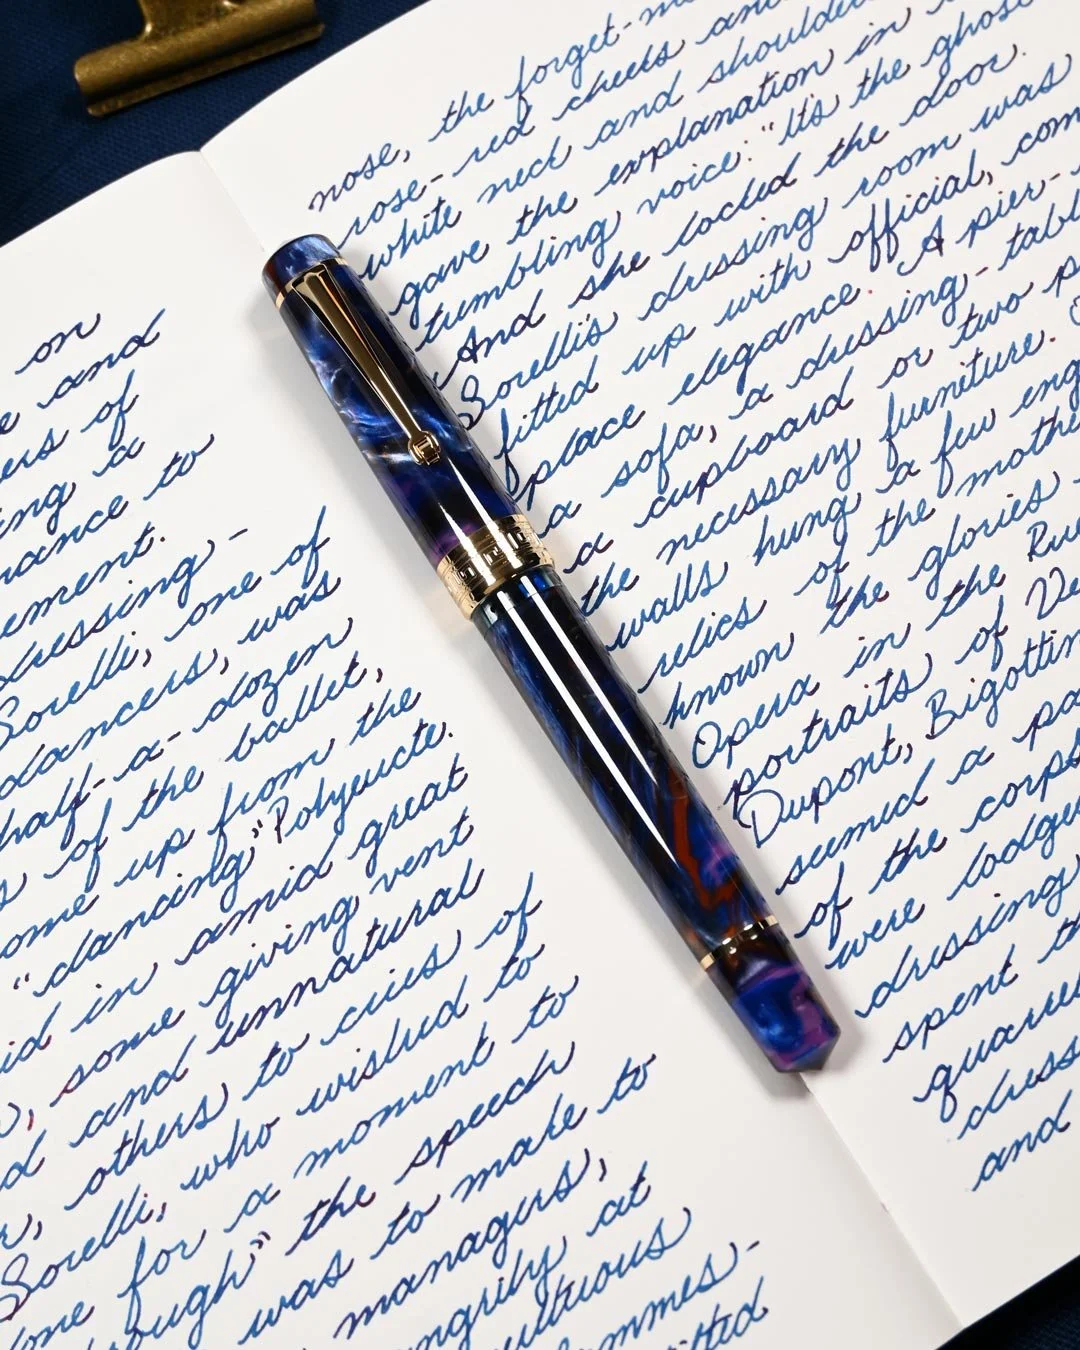 on
and
of
a
to
dressing-
Sorelli, one of
dancers, was
half-a-dozen
of the ballet,
come up from the
"dancing" Polyeucte.
in amid great
some giving vent
and unnatural
others to cries of
Sorelli, who wished to
for a moment to
" the speech
was to make to
managers,
at
the forget-
nose, rose-red cheeks and
white neck and shoulders
gave the explanation in
trembling voice: "It's the ghost
And she locked the door.
Sorelli's dressing room was
fitted up with official,
place elegance. A pier-
a sofa, a dressing-
a cupboard or two
the necessary furniture.
walls hung a few
relics of the
known the glories
Opera in the
portraits of
Dupont,
seemed a
of the corps
were
dressing
spent
and